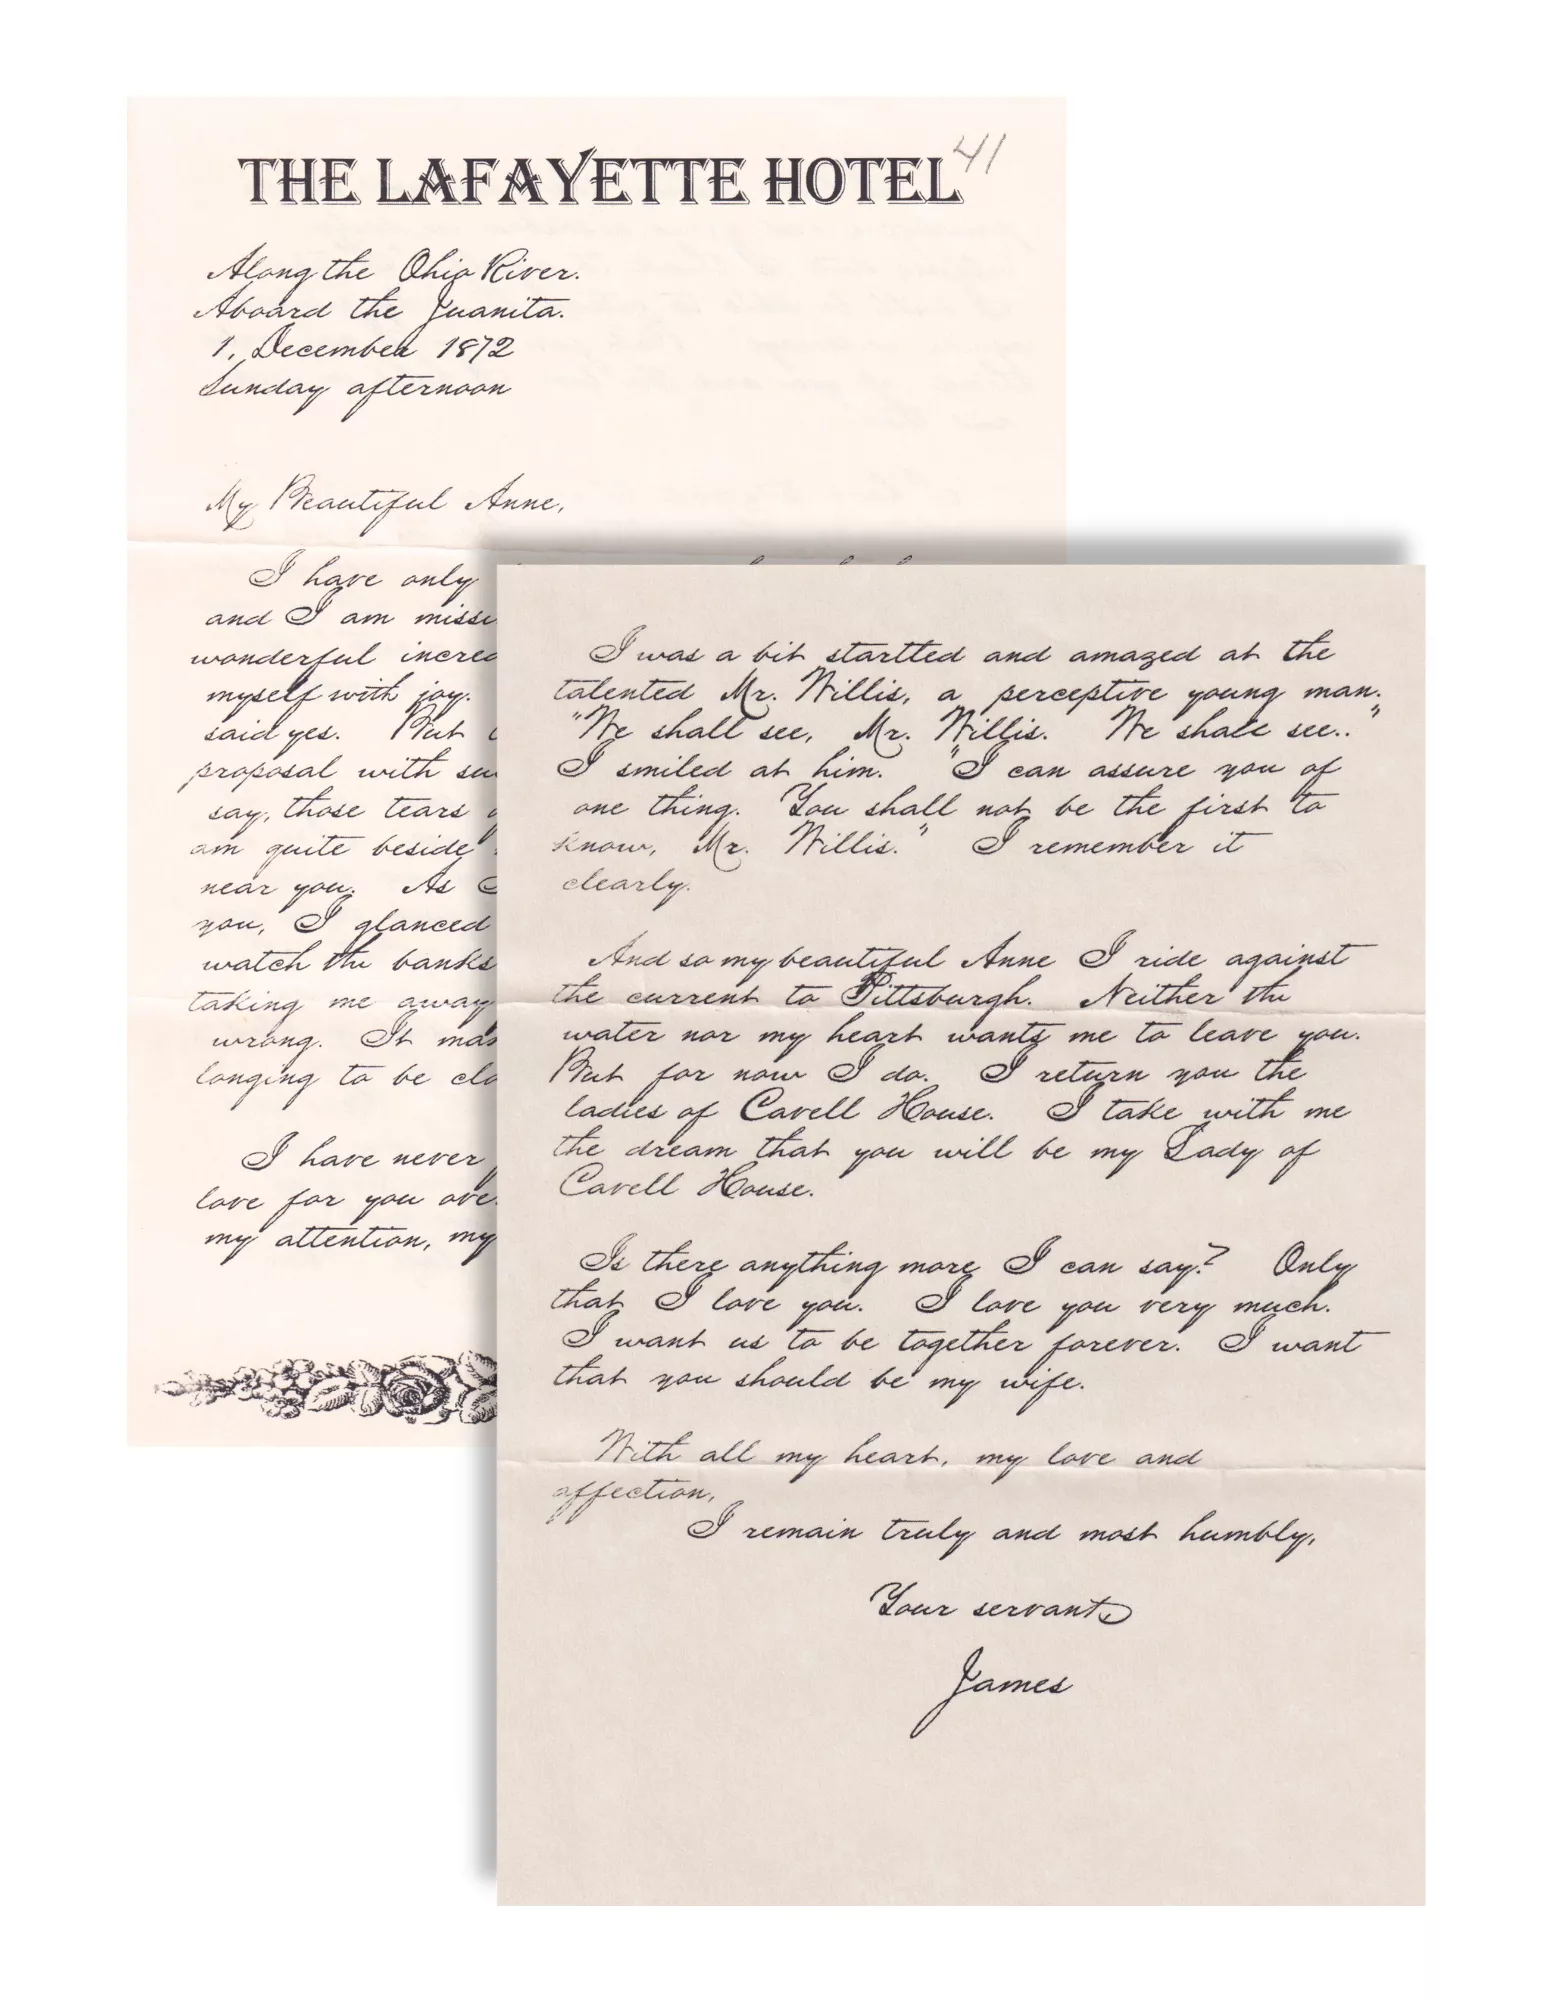 THE LAFAYETTE HOTEL
41
Along the Ohio River.
Aboard the Juanita.
1, December 1872
Sunday afternoon
My Beautiful Anne,
I have only
and I am
wonderful
myself with joy.
said yes. But
proposal with
say, those tears
am quite beside
near you. As
you, I glanced
watch the banks
taking me away
wrong. It
longing to be
I have never
love for you
my attention, my
I was a bit startted and amazed at the
talented Mr. Willis, a perceptive young man.
"We shall see, Mr. Willis. We shall see.."
I smiled at him. "I can assure you of
one thing. You shall not be the first to
know, Mr. Willis." I remember it
clearly.
And so my beautiful Anne I ride against
the current to Pittsburgh. Neither the
water nor my heart wants me to leave you.
But for now I do. I return you the
ladies of Cavell House. I take with me
the dream that you will be my Lady of
Cavell House.
Is there anything more I can say? Only
that I love you. I love you very much.
I want us to be together forever. I want
that you should be my wife.
With all my heart, my love and
affection,
I remain truly and most humbly,
Your servant,
James